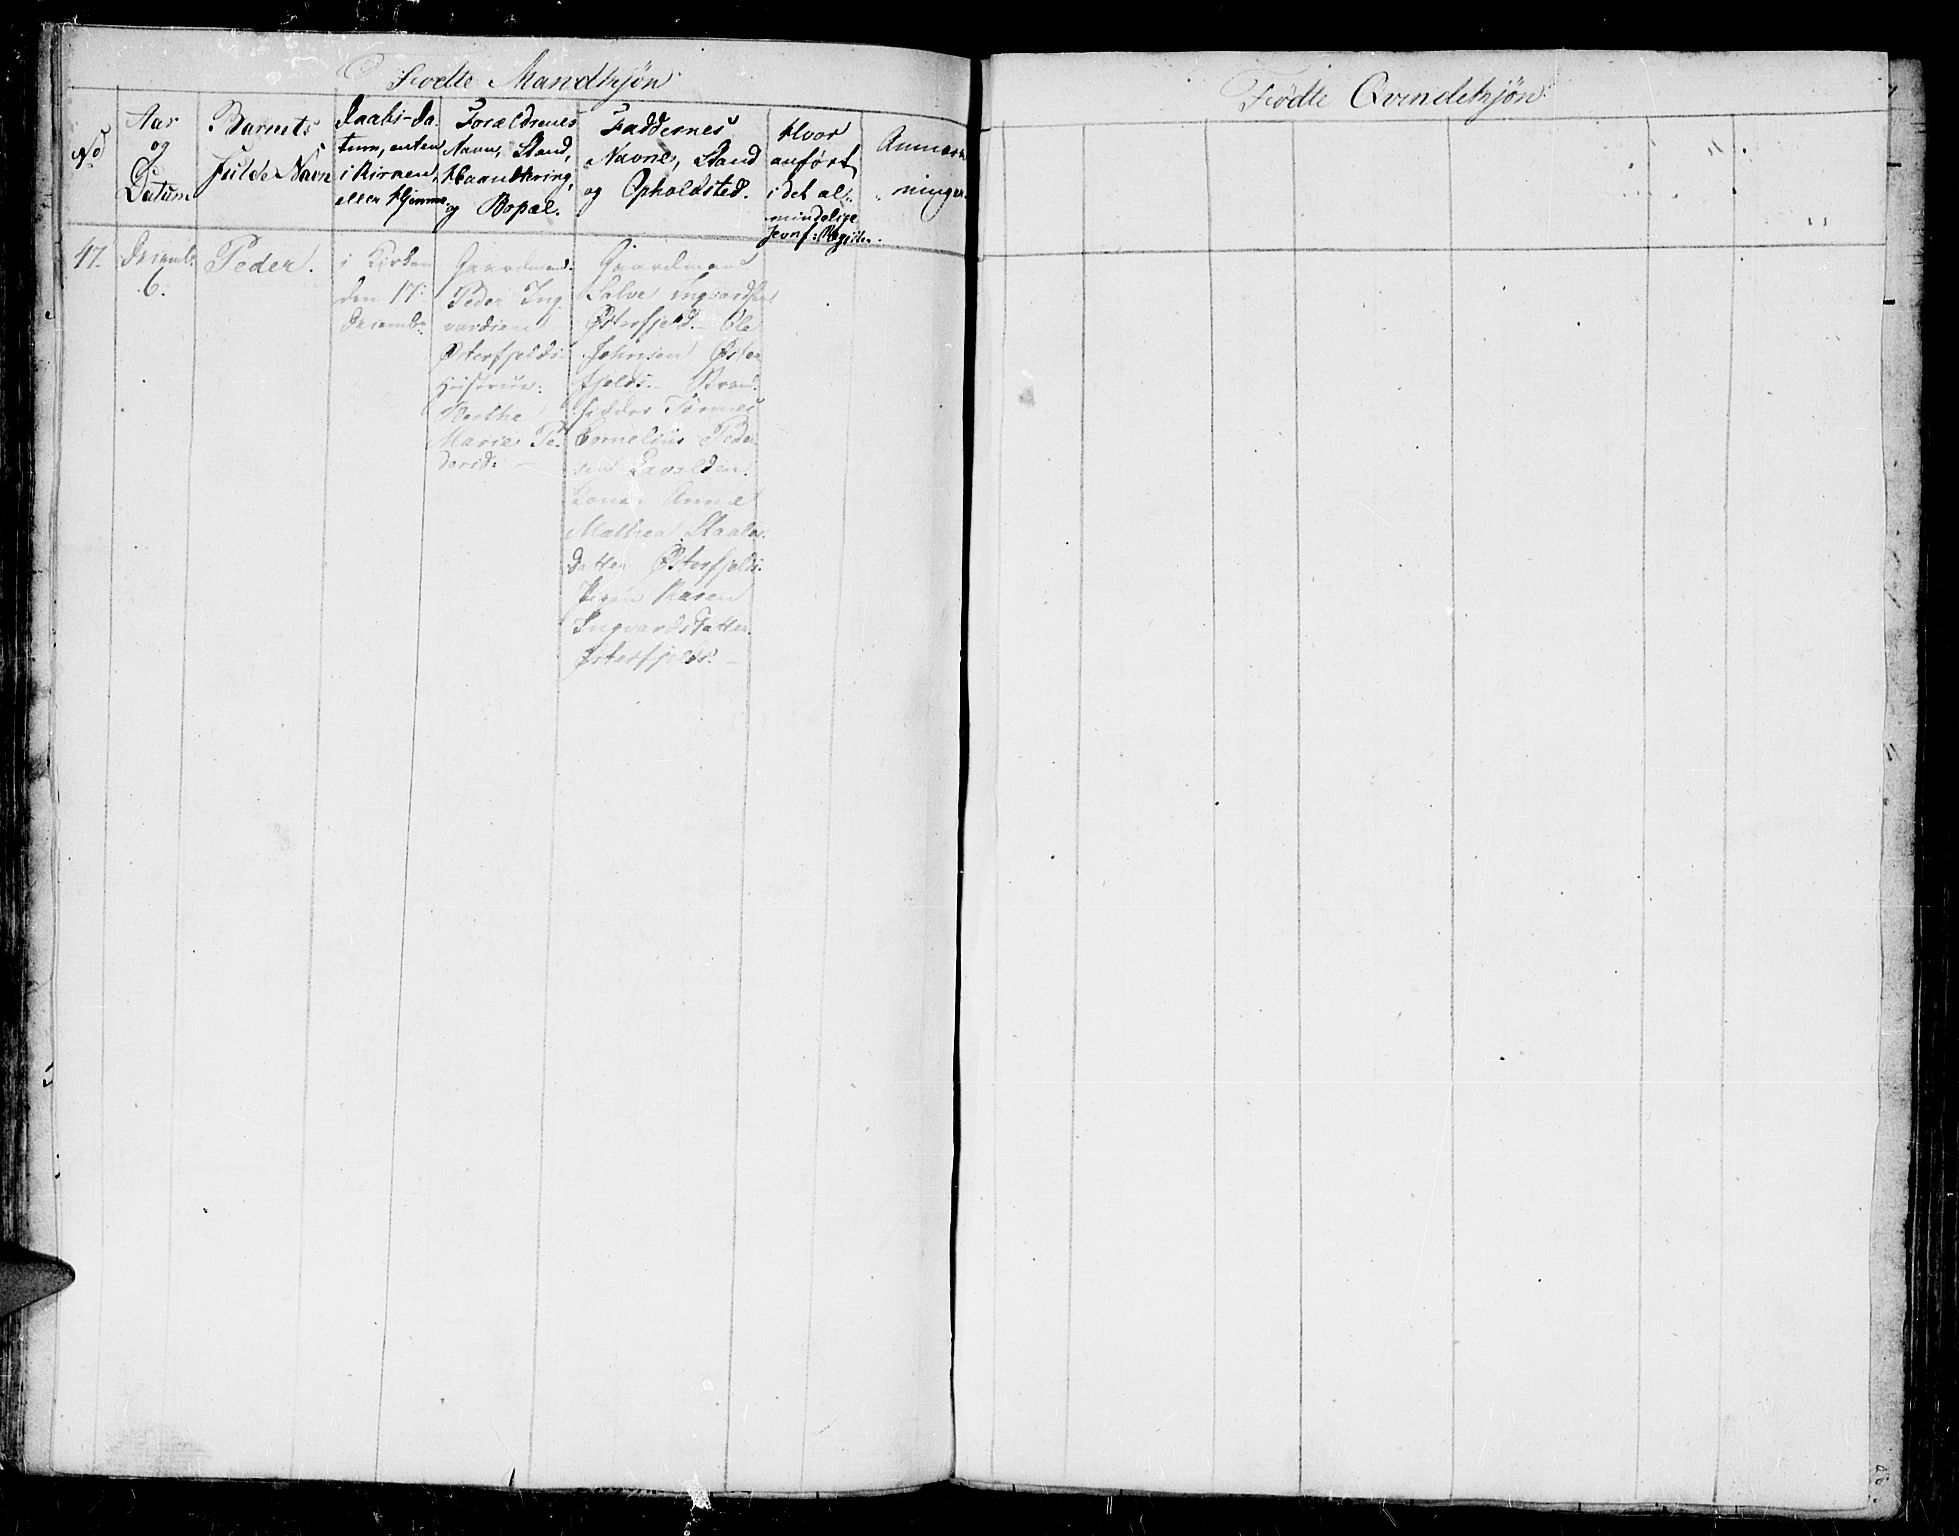 Fødte Mandkjøn
No
Aar
og
Datum
Barnets
fulde Navn
Daabs-Da-
tum, enten
i Kirken,
eller Hjemme.
Forældrenes
Navn, Stand,
Haandtering,
og Bopæl.
Faddernes
Navne, Stand
og Opholdsted.
Hvor
anført
i det al-
mindelige
Jevnf: Register.
Anmærk
ninger.
17.
Decemb.
6.
Peder.
i Kirken
den 17:
Decembr.
Gaardmand
Peder Ing
vardsen
Østerfjelds
Hustrue:
Berthe
Marie Pe-
dersd: —
Gaardmand
Salve Ingvardsen
Østerfjeld. — Ole
Johnsen Øster
fjelds. — Strand
sidder Tønnes
Cornelius Peder
sen
Kone Anne
Mathea
datter Østerfjelds.
Pigen Karen
Ingvardsdatter
Østerfjelds. —
Fødte Qvindekjøn